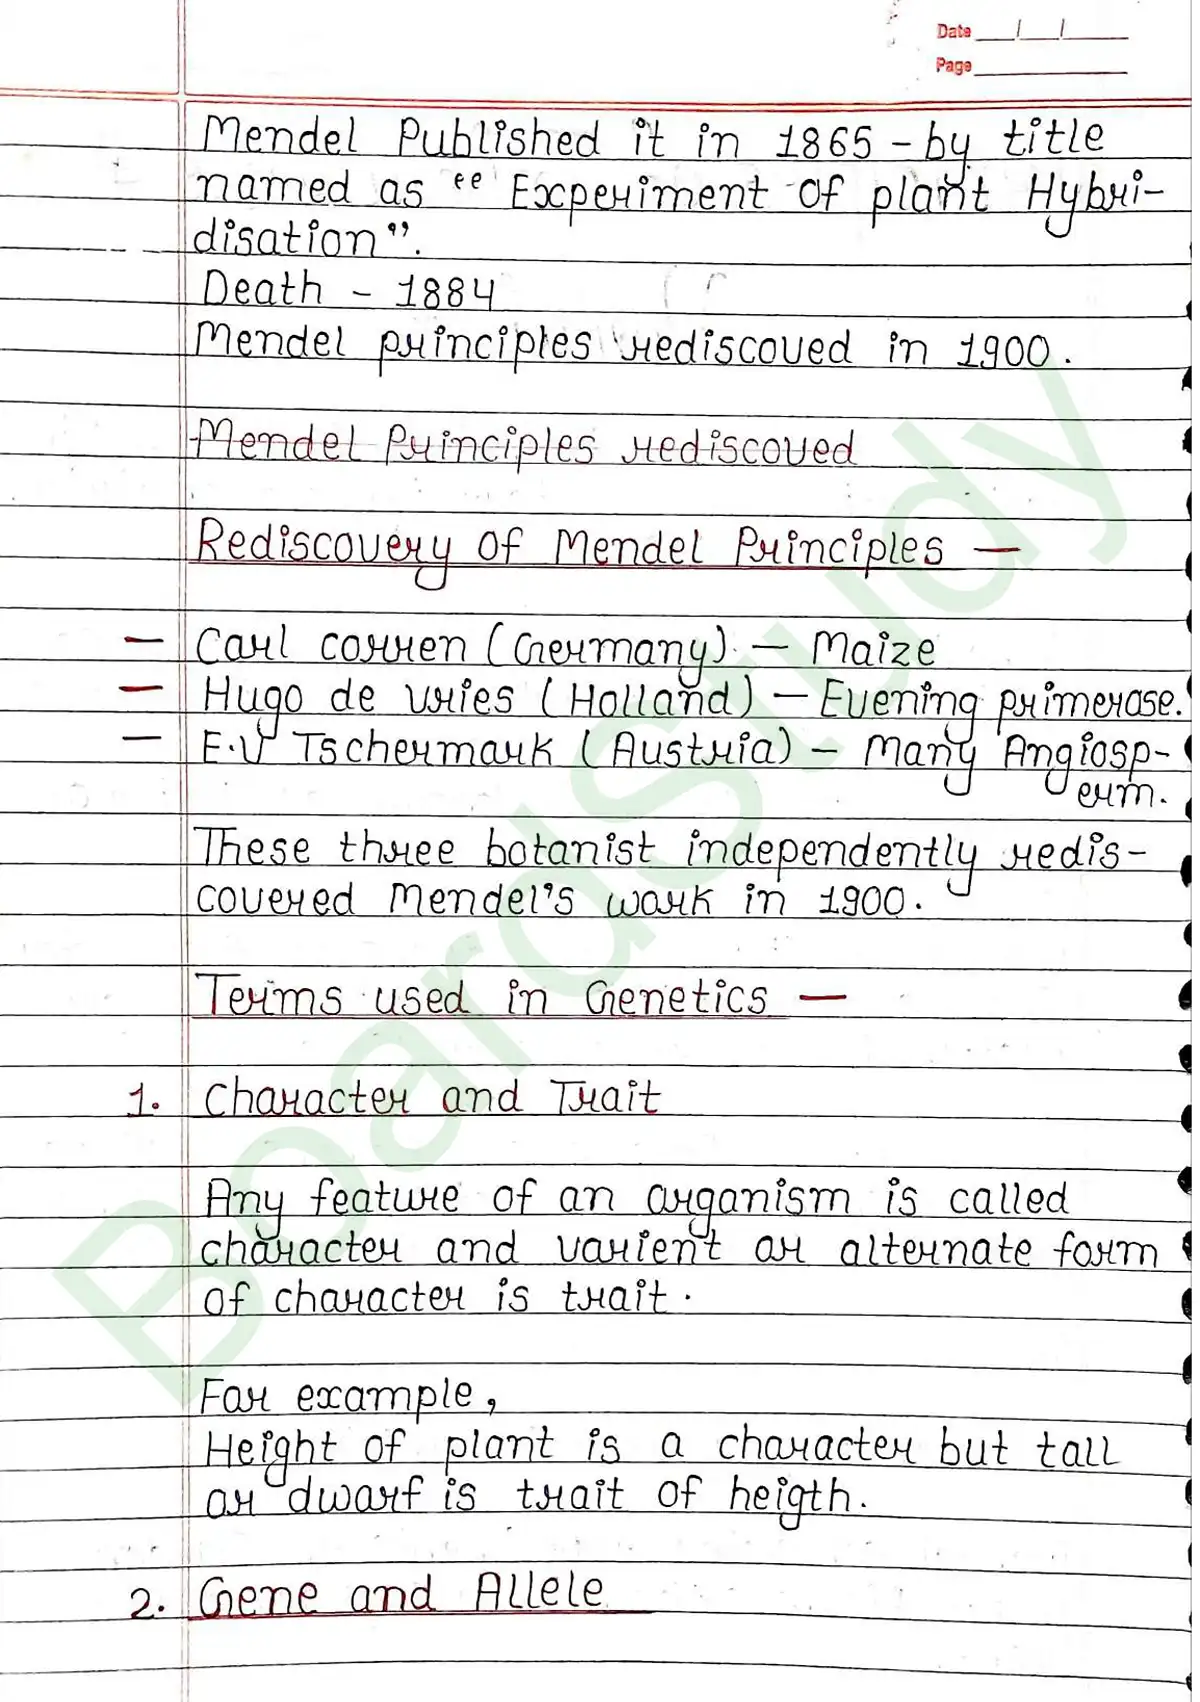 Date __/__/__
Page
Mendel Published it in 1865 - by title
named as " Experiment of plant Hybri-
disation".
Death - 1884
Mendel principles rediscoved in 1900.
Mendel Principles rediscoved
Rediscovery of Mendel Principles —
— Carl corren (Germany). — Maize
— Hugo de vries (Holland) — Evening primerose.
— E.V Tschermark (Austria) — Many Angiosp-
erm.
These three botanist independently redis-
covered Mendel's work in 1900.
Terms used in Genetics —
1. Character and Trait
Any feature of an organism is called
character and varient or alternate form
of character is trait.
For example,
Height of plant is a character but tall
or dwarf is trait of heigth.
2. Gene and Allele
BoardStudy